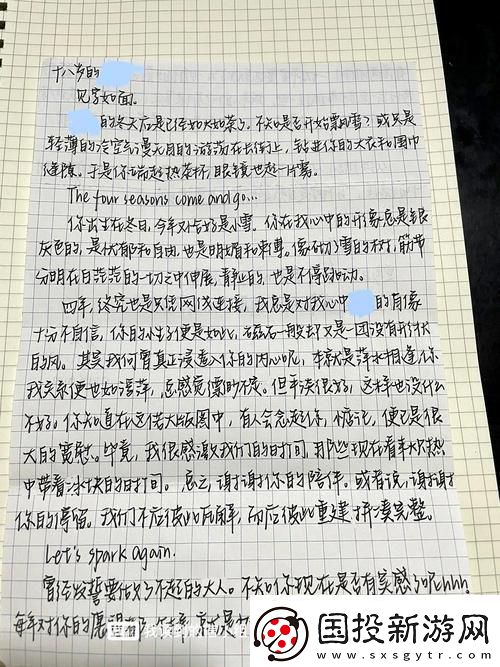 十八岁的
见字如面。
的冬天应是已经如火如荼了。不知是否开始飘雪？或只是
轻薄的冷空气漫无目的游荡在街上，钻进你的大衣和围巾
缝隙。于是你端起热茶杯，眼镜也起一片雾。
The four seasons come and go...
你出生在冬日，今年又恰好是小雪。你在我心中的形象总是银
灰色的，是忧郁和自由，也是明媚和
像初雪的树，筋节
分明在白茫茫的一切之中伸展，静止的，也是不停跃动。
四年，终究也是只凭网线连接，我总是对我心中 的肖像
十分不自信，你的性子便是如此，磁石一般却又是一团没有形状
的风。其实我何曾真正浸透入你的内心呢，本就是萍水相逢，你
我关系便也如浮萍，总感觉飘的不定。但平淡很好，这样也没什么
不好。你知道在这偌大版图中，有人会念起你，惦记，便已是很
大的宽慰。毕竟，我很感激我们的时间，那些现在看来水热
中带着冰块的时间。总之，谢谢你的陪伴。或者说，谢谢
你的停留。我们不启彼此瓦解，而启彼此重建，拼凑完整。
Let's spark again.
曾经发誓要做了不起的大人。不知你现在是否有实感了呢hhh。
每年对你的愿望
国投新游网
www.sxsgytr.com